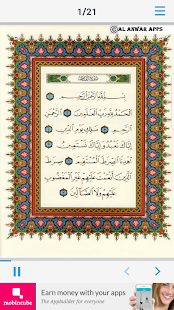 1/21
©AL ANWAR APPS
بِسْمِ اللَّهِ الرَّحْمَٰنِ الرَّحِيمِ
الْحَمْدُ لِلَّهِ رَبِّ الْعَالَمِينَ الرَّحْمَٰنِ
الرَّحِيمِ مَالِكِ يَوْمِ الدِّينِ
إِيَّاكَ نَعْبُدُ وَإِيَّاكَ نَسْتَعِينُ
اهْدِنَا الصِّرَاطَ الْمُسْتَقِيمَ صِرَاطَ الَّذِينَ
أَنْعَمْتَ عَلَيْهِمْ غَيْرِ الْمَغْضُوبِ
عَلَيْهِمْ وَلَا الضَّالِّينَ
mobincube
Earn money with your apps
The Appbuilder for everyone